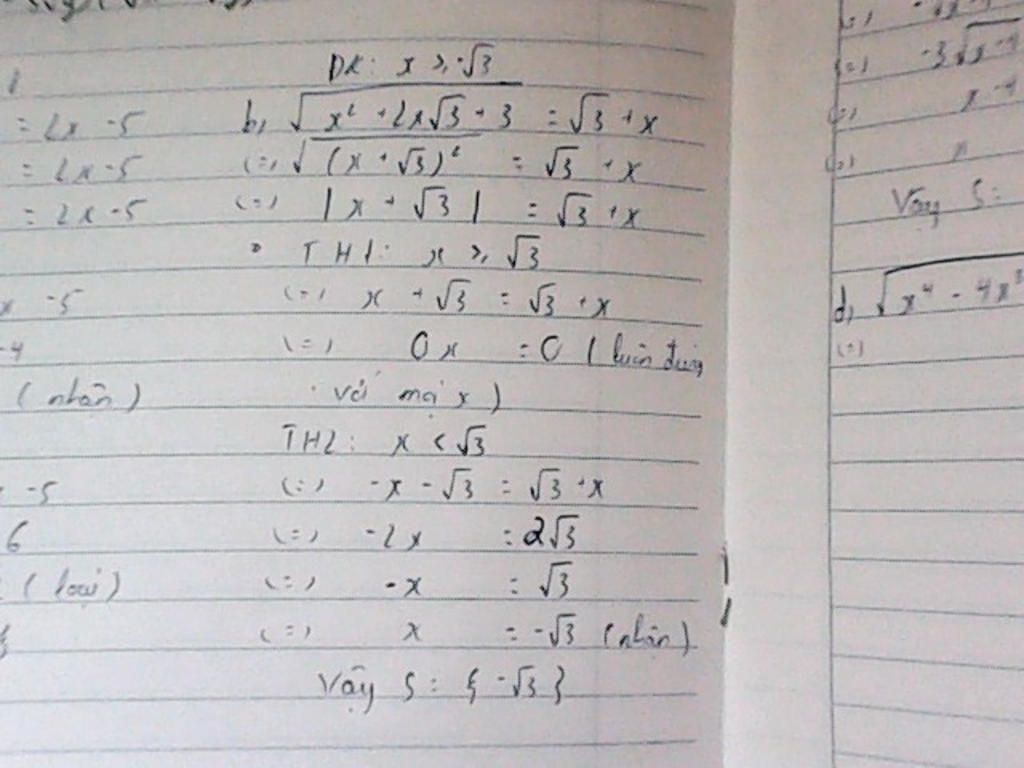 1
= 2x - 5
= 2x - 5
= 2x - 5
x - 5
-4
(nhận)
- 5
6
(loại)
ĐK: x ≥ -√3
b, √(x² + 2x√3 + 3) = √3 + x
(=) √((x + √3)²) = √3 + x
(=) |x + √3| = √3 + x
• TH1: x ≥ √3
(=) x + √3 = √3 + x
(=) 0x = 0 (luôn đúng
với mọi x)
TH2: x < √3
(=) -x - √3 = √3 + x
(=) -2x = 2√3
(=) -x = √3
(=) x = -√3 (nhận)
Vậy S = {-√3}
(=) -3√(x-4)
(=) x - 4
(=) x
Vậy S =
d, √(x⁴ - 4x³
(=)